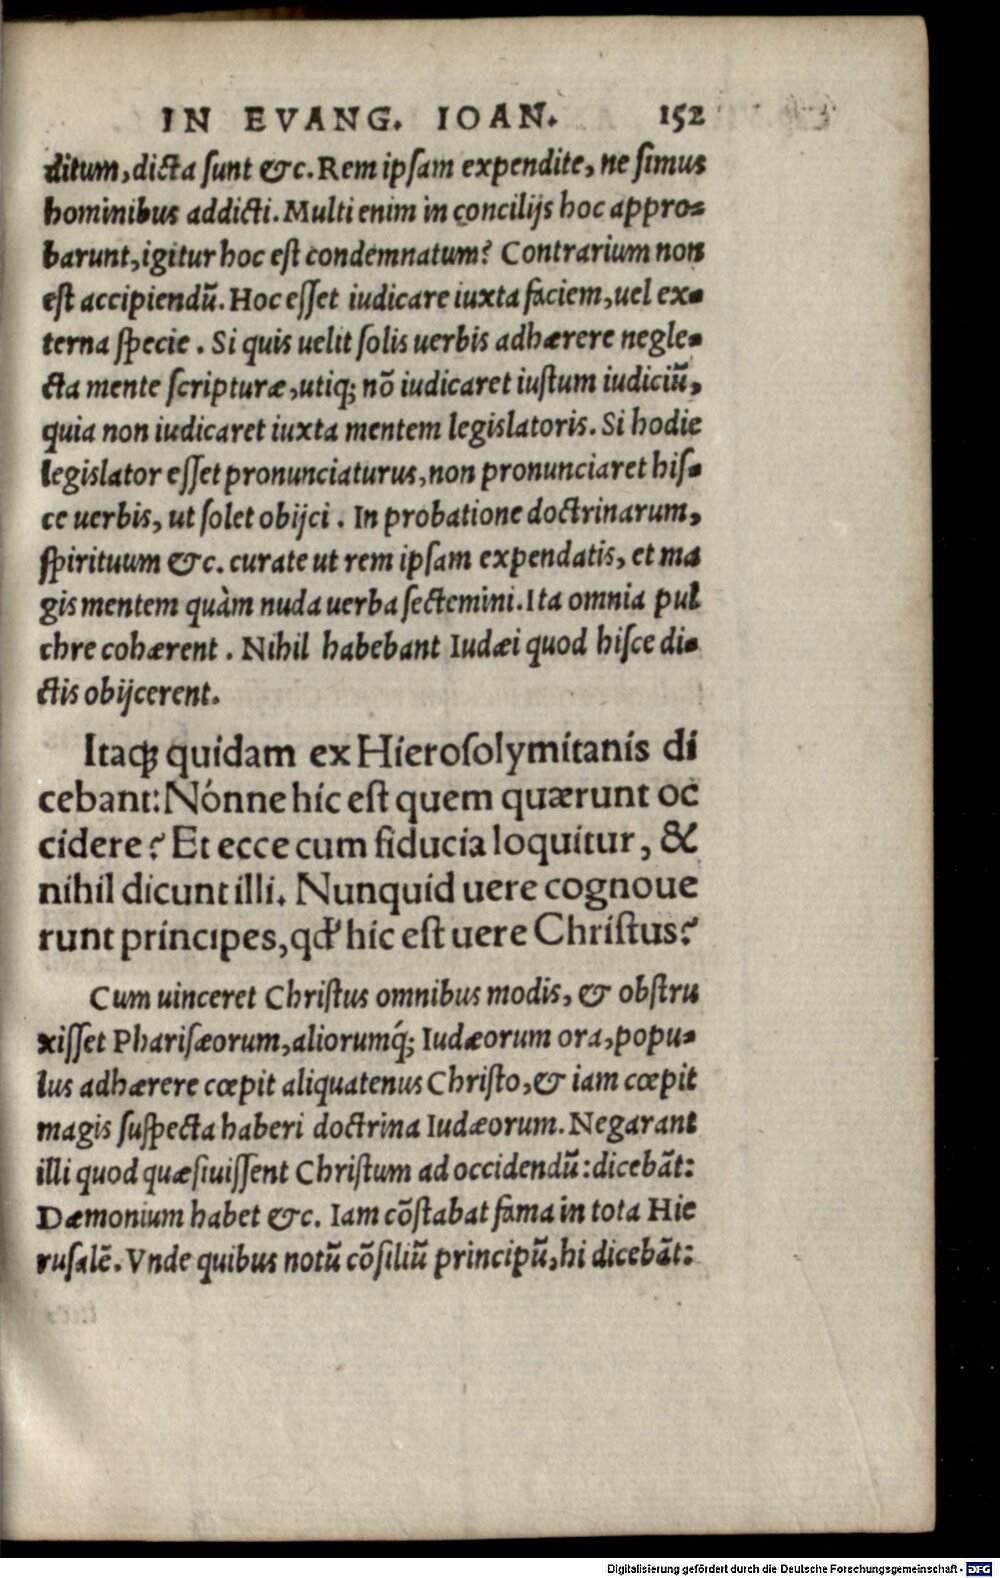 IN EVANG. IOAN. 152
ditum, dicta sunt &c. Rem ipsam expendite, ne simus
hominibus addicti. Multi enim in concilijs hoc appro-
barunt, igitur hoc est condemnatum? Contrarium non
est accipiendũ. Hoc esset iudicare iuxta faciem, uel ex-
terna specie. Si quis uelit solis uerbis adhærere negle-
cta mente scripturæ, utiq; nõ iudicaret iustum iudiciũ,
quia non iudicaret iuxta mentem legislatoris. Si hodie
legislator esset pronunciaturus, non pronunciaret his-
ce uerbis, ut solet obijci. In probatione doctrinarum,
spirituum &c. curate ut rem ipsam expendatis, et ma
gis mentem quàm nuda uerba sectemini. Ita omnia pul
chre cohærent. Nihil habebant Iudæi quod hisce di-
ctis obijcerent.
Itaq; quidam ex Hierosolymitanis di
cebant: Nónne hic est quem quærunt oc
cidere? Et ecce cum fiducia loquitur, &
nihil dicunt illi. Nunquid uere cognoue
runt principes, qđ hic est uere Christus?
Cum uinceret Christus omnibus modis, & obstru
xisset Pharisæorum, aliorumq́; Iudæorum ora, popu-
lus adhærere cœpit aliquatenus Christo, & iam cœpit
magis suspecta haberi doctrina Iudæorum. Negarant
illi quod quæsiuissent Christum ad occidendũ: dicebãt:
Dæmonium habet &c. Iam cõstabat fama in tota Hie
rusalẽ. Vnde quibus notũ cõsiliũ principũ, hi dicebãt:
Digitalisierung gefördert durch die Deutsche Forschungsgemeinschaft - DFG